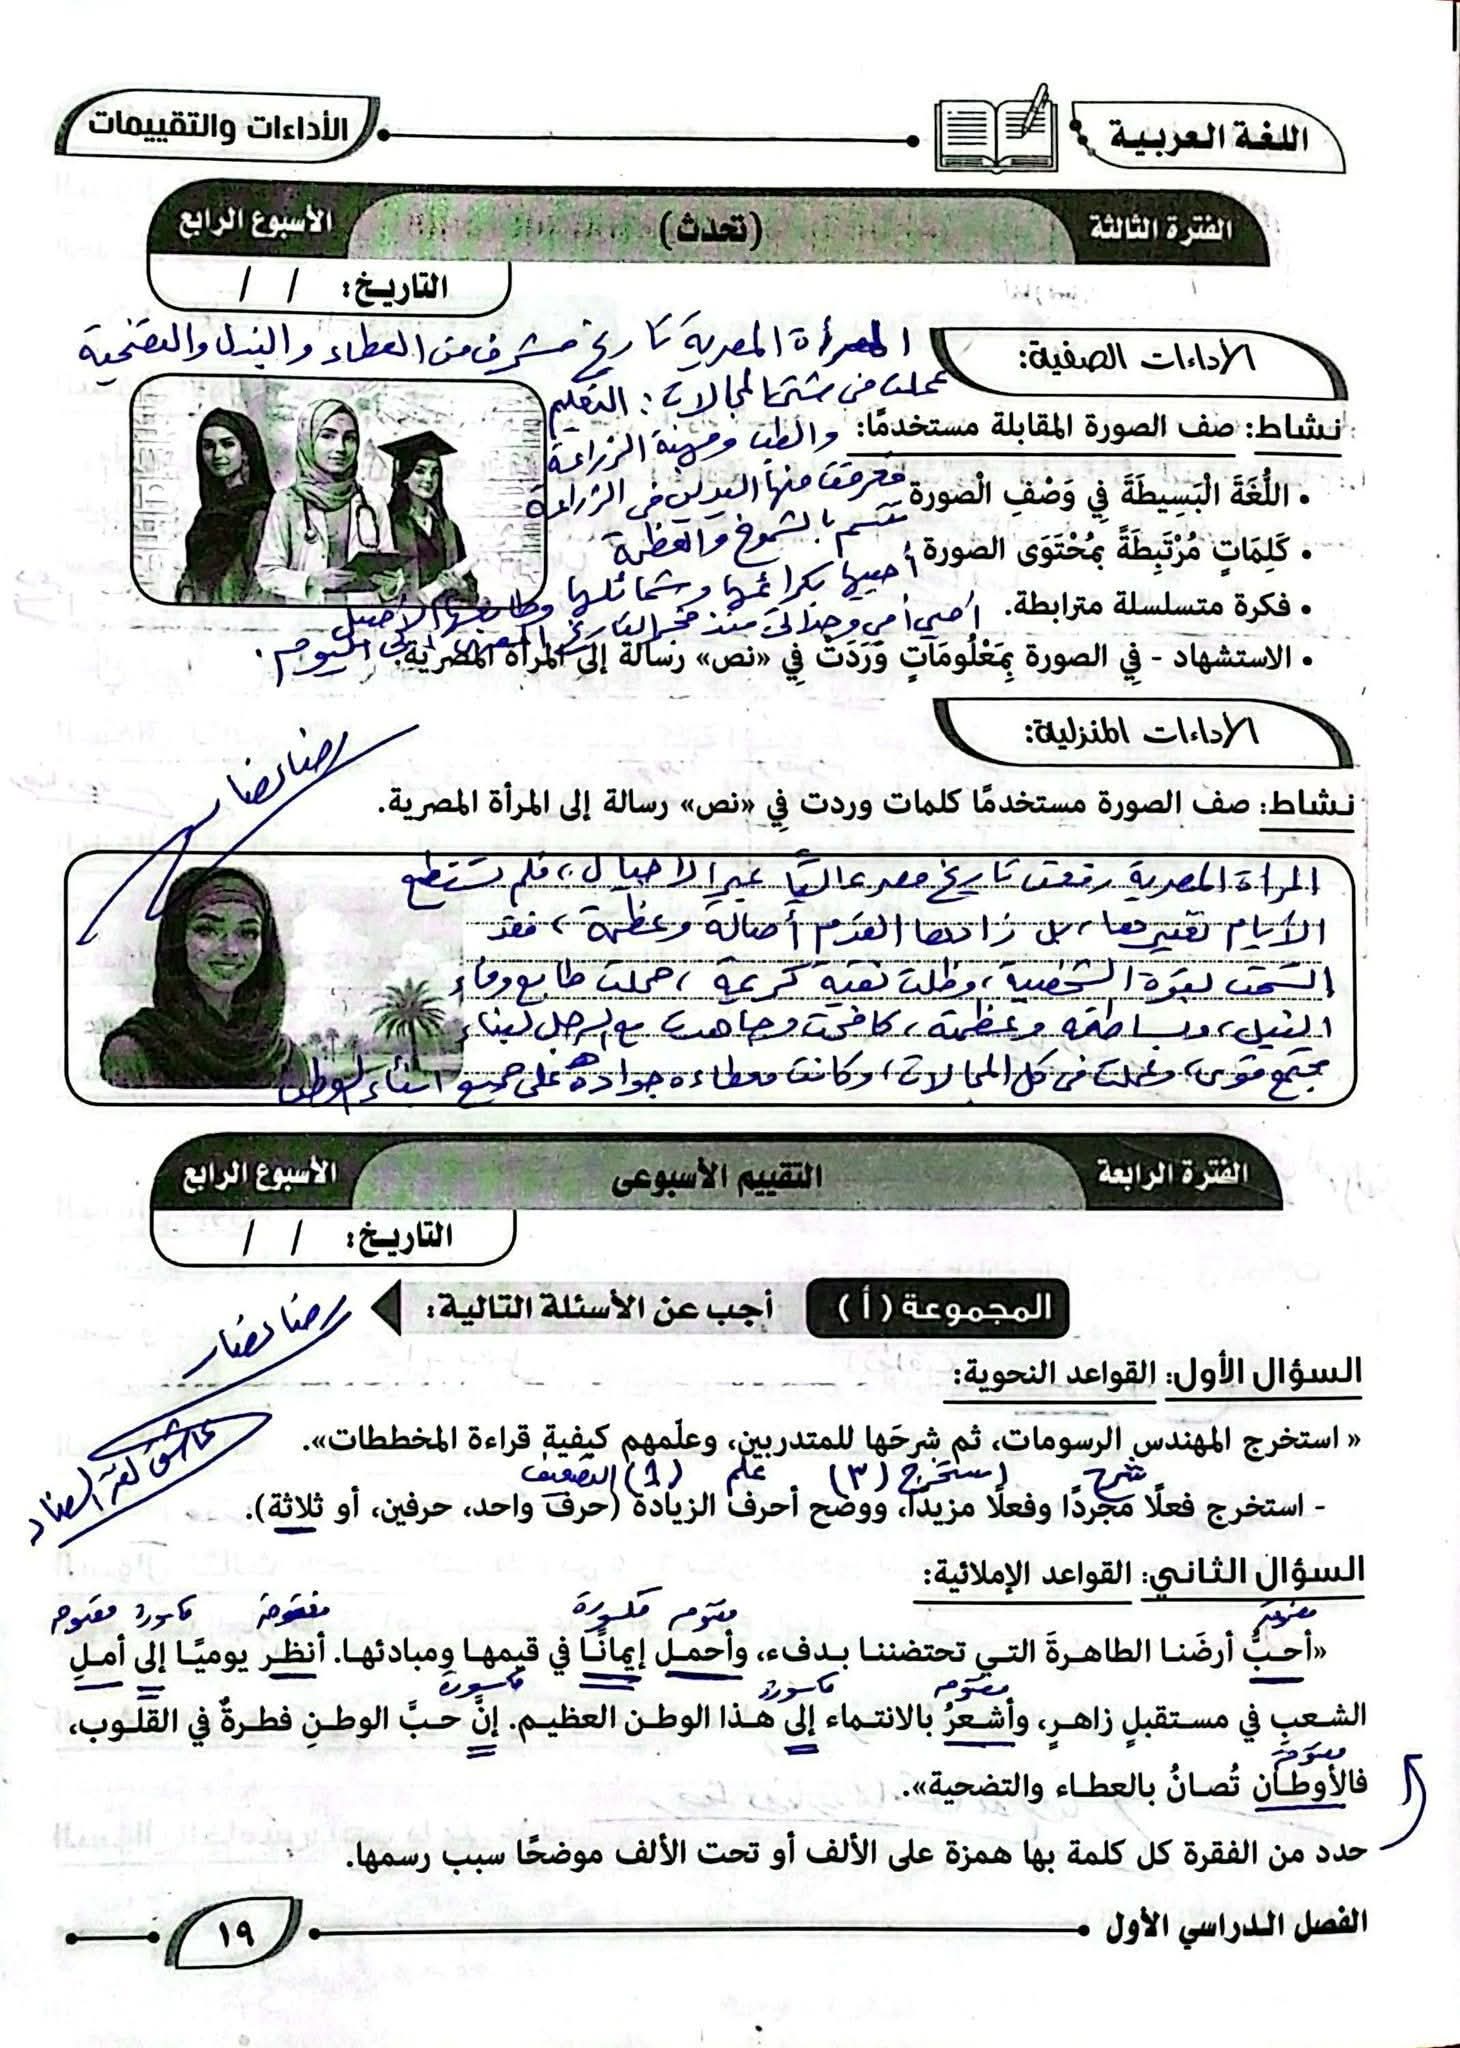 اللغة العربية
الأداءات والتقييمات
الفترة الثالثة
(تحدث)
الأسبوع الرابع
التاريخ: / /
الأداءات الصفية:
المرأة المصرية تاريخ مشرف من العطاء والبذل والتضحية
عملت في شتى المجالات: التعليم
والطب ومهنة الزراعة
نشاط: صف الصورة المقابلة مستخدمًا:
• اللُّغَةَ الْبَسِيطَةَ فِي وَصْفِ الْصورة
فعرقت منها اليدين في الزراعة
تتسم بالشموخ والعظمة
• كَلِمَاتٍ مُرْتَبِطَةً بِمُحْتَوَى الصورة
أحييها بكرائمها وشمائلها وطابعها الأصيل
• فكرة متسلسلة مترابطة.
أحيي أمي وخالتي منذ فجر التاريخ المصري إلى اليوم.
• الاستشهاد - فِي الصورة بِمَعْلُومَاتٍ وَرَدَتْ فِي «نص» رسالة إلَى المرأة المصرية.
الأداءات المنزلية:
رضا نصار
نشاط: صف الصورة مستخدمًا كلمات وردت فِي «نص» رسالة إلى المرأة المصرية.
المرأة المصرية رفعت تاريخ مصر عاليًا عبر الأجيال، فلم تستطع
الأيام تغييرها، بل زادها القدم أصالة وعظمة، فقد
اتسمت بقوة الشخصية، وظلت نقية كريمة، حملت طابع وفاء
النيل، وبساطته وعظمته، كافحت وجاهدت مع الرجل لبناء
مجتمع قوى، وعملت فى كل المجالات، وكانت معطاءة جوادة على جميع أبناء الوطن
الفترة الرابعة
التقييم الأسبوعى
الأسبوع الرابع
التاريخ: / /
المجموعة (أ) أجب عن الأسئلة التالية:
رضا نصار
السؤال الأول: القواعد النحوية:
عاشق لغة الضاد
« استخرج المهندس الرسومات، ثم شرحَها للمتدربين، وعلّمهم كيفية قراءة المخططات».
شرح استخرج (٣) علم (1) التضعيف
- استخرج فعلًا مجردًا وفعلًا مزيدًا، ووضح أحرف الزيادة (حرف واحد، حرفين، أو ثلاثة).
السؤال الثاني: القواعد الإملائية:
مضمومة مفتوحه مكسورة مفتوحة مكسورة مفتوحه
«أحبُّ أرضَنا الطاهرةَ التي تحتضننا بدفء، وأحمل إيمانًا في قيمها ومبادئها. أنظر يوميًا إلى أملِ
مفتوحه مكسورة مكسورة
الشعبِ في مستقبلٍ زاهرٍ، وأشعرُ بالانتماء إلى هذا الوطن العظيم. إنَّ حبَّ الوطنِ فطرةٌ في القلوب،
مفتوحة
فالأوطان تُصانُ بالعطاء والتضحية».
حدد من الفقرة كل كلمة بها همزة على الألف أو تحت الألف موضحًا سبب رسمها.
الفصل الدراسي الأول
١٩